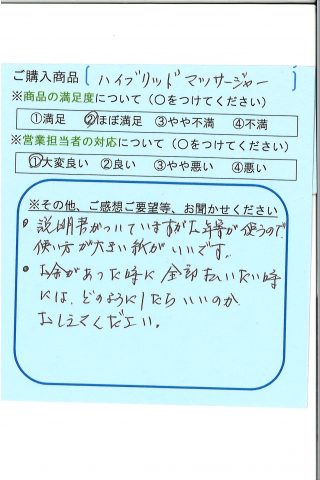 ご購入商品 [ハイブリッドマッサージャー
※商品の満足度について（○をつけてください）
①満足 ②ほぼ満足 ③やや不満 ④不満
※営業担当者の対応について（○をつけてください）
①大変良い ②良い ③やや悪い ④悪い
※その他、ご感想ご要望等、お聞かせください
・説明書がついていますが 使うので
使い方が大きい紙がいいです。
・お金があった時に全部払いたい時
には、どのようにしたらいいのか
おしえてください。